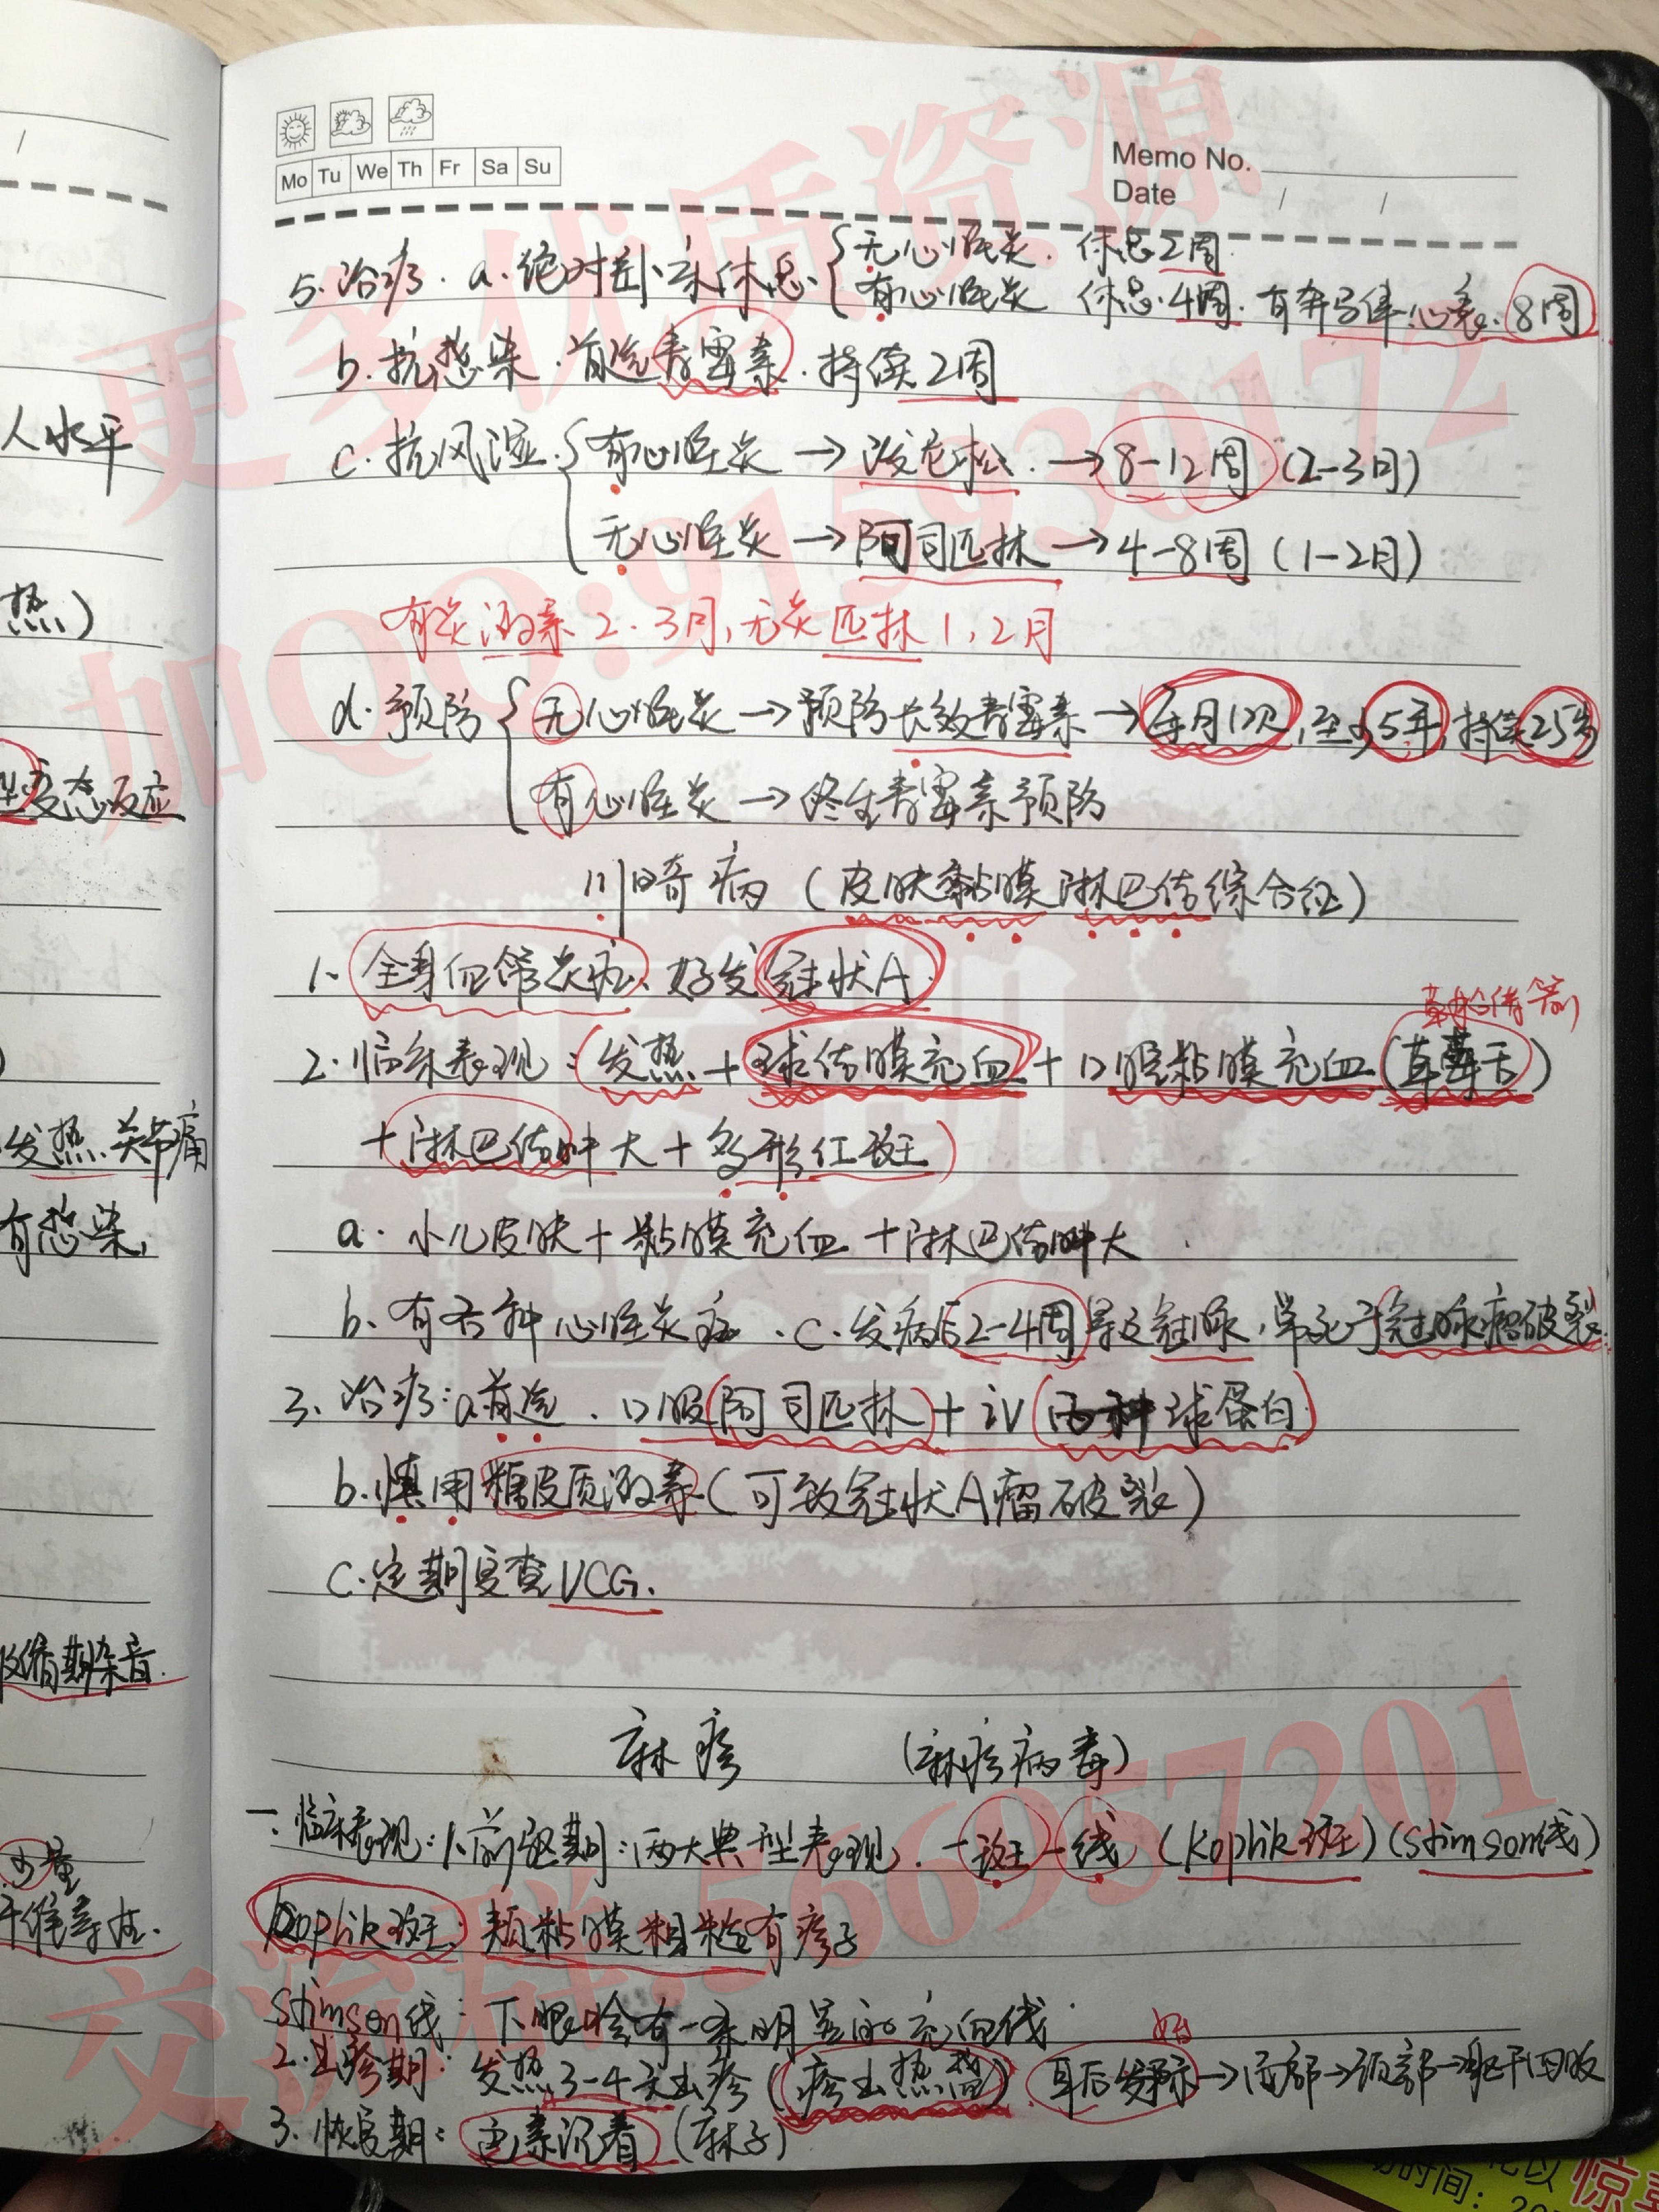 Mo Tu We Th Fr Sa Su
Memo No.
Date / /
更多优质资源
加QQ:915930172
5.治疗.a.绝对卧床休息.{无心脏炎.休息2周.
有心脏炎 休息.4周.有奔马律心衰.8周
b.抗感染.首选青霉素.持续2周
c.抗风湿.{有心脏炎→泼尼松.→8-12周(2-3月)
无心脏炎→阿司匹林→4-8周(1-2月)
有炎激素2.3月,无炎匹林1,2月
d.预防{无心脏炎→预防长效青霉素→每月1次,至少5年,持续25岁
有心脏炎→终生青霉素预防
川崎病(皮肤黏膜淋巴结综合征)
1.全身血管炎症、好发冠状A.
2.临床表现:(发热+球结膜充血+口腔粘膜充血(草莓舌)
+淋巴结肿大+多形红斑)
a.小儿皮肤+黏膜充血+淋巴结肿大
b.有各种心脏炎症.c.发病后2-4周累及冠脉,常死于冠脉瘤破裂.
3.治疗:a.首选.口服阿司匹林+iv丙种球蛋白.
b.慎用糖皮质激素(可致冠状A瘤破裂)
c.定期复查UCG.
麻疹 (麻疹病毒)
一.临床表现:1.前驱期:两大典型表现.一斑一线(Koplik斑)(Stimson线)
Koplik斑:颊粘膜粗糙有疹子
Stimson线:下眼睑有一条明显的充血线.
2.出疹期:发热3-4天出疹(疹出热高) 耳后发际→面部→颈部→躯干四肢
始
3.恢复期:色素沉着(麻子)
交流群:566957201
人水平
热)
型变态反应
发热.关节痛
有感染,
收缩期杂音.
少量
时间:
惊